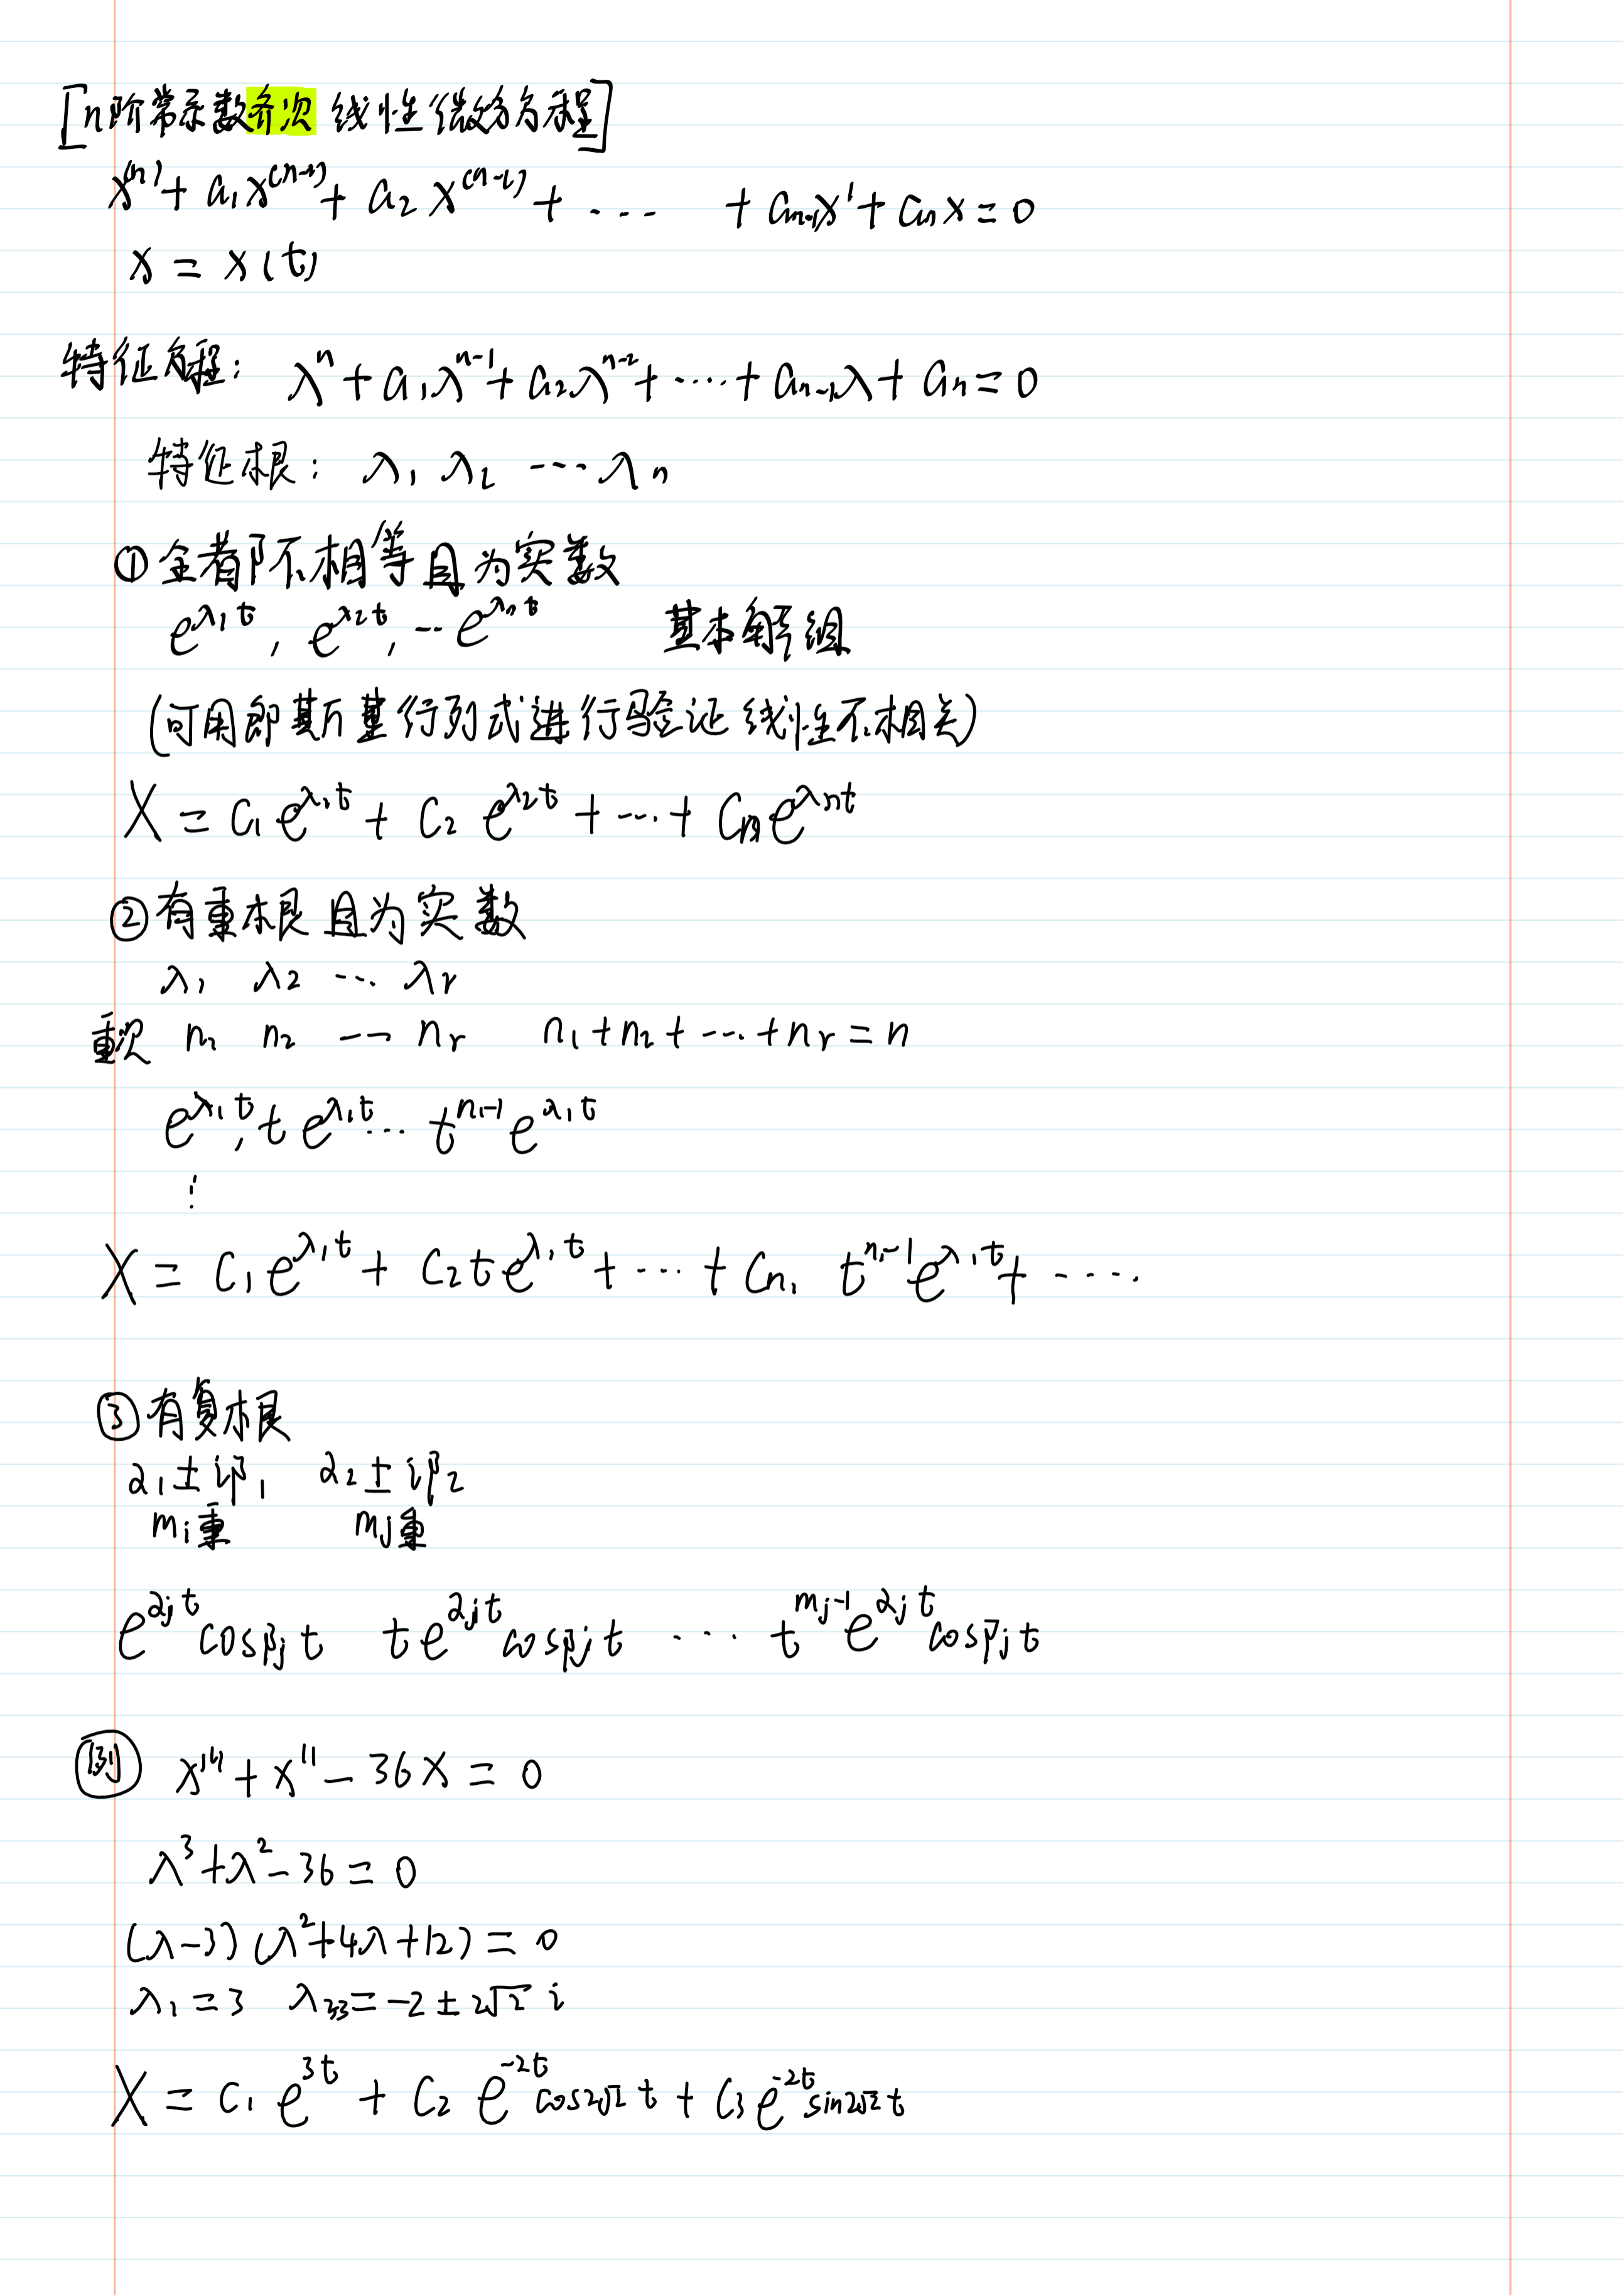 [n阶常系数齐次线性微分方程]
x⁽ⁿ⁾ + a₁x⁽ⁿ⁻¹⁾ + a₂x⁽ⁿ⁻²⁾ + ··· + aₙ₋₁x' + aₙx = 0
x = x(t)
特征方程: λⁿ + a₁λⁿ⁻¹ + a₂λⁿ⁻² + ··· + aₙ₋₁λ + aₙ = 0
特征根: λ₁ λ₂ ··· λₙ
①全都不相等且为实数
e^{λ₁t}, e^{λ₂t}, ··· e^{λₙt} 基本解组
(可用郎斯基行列式进行验证线性不相关)
X = C₁e^{λ₁t} + C₂e^{λ₂t} + ··· + Cₙe^{λₙt}
②有重根且为实数
λ₁ λ₂ ··· λᵣ
重次 n₁ n₂ ··· nᵣ n₁+n₂+···+nᵣ = n
e^{λ₁t}, te^{λ₁t} ··· t^{n₁-1}e^{λ₁t}
⋮
X = C₁e^{λ₁t} + C₂te^{λ₁t} + ··· + C_{n₁} t^{n₁-1}e^{λ₁t} + ····
③有复根
α₁±iβ₁ α₂±iβ₂
mᵢ重 mⱼ重
e^{αⱼt}cosβⱼt te^{αⱼt}cosβⱼt ··· t^{mⱼ-1}e^{αⱼt}cosβⱼt
例 x''' + x'' - 36x = 0
λ³+λ²-36 = 0
(λ-3)(λ²+4λ+12) = 0
λ₁=3 λ₂,₃=-2±2√2 i
X = C₁e^{3t} + C₂e^{-2t}cos2√2t + C₃e^{-2t}sin2√2t